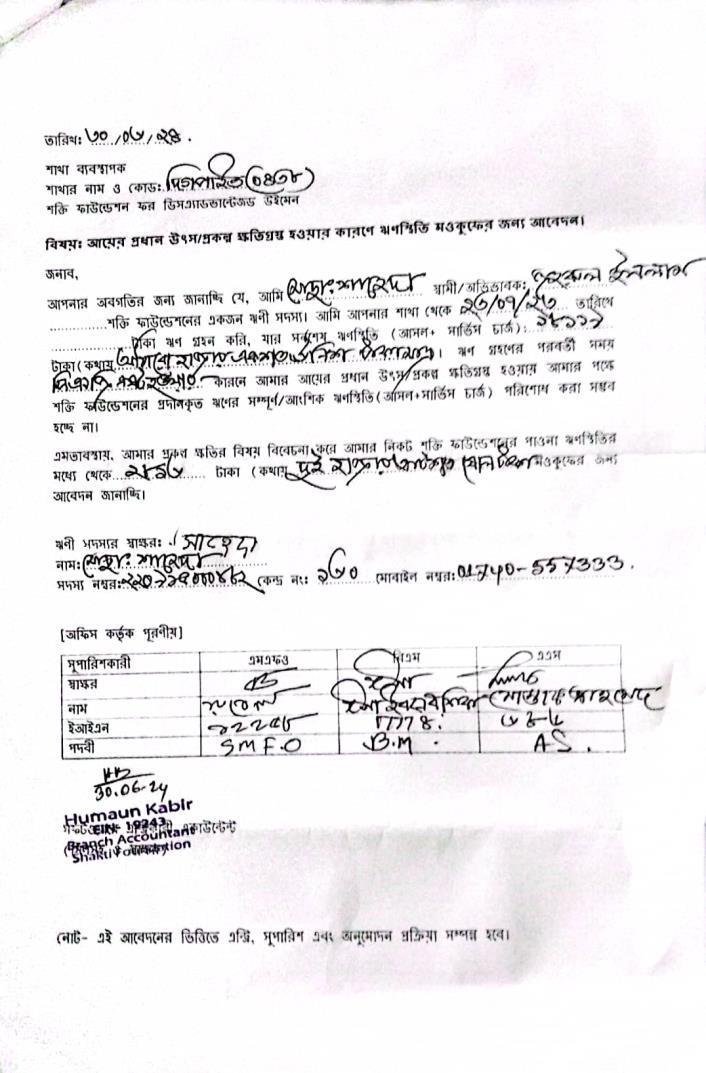 তারিখঃ ৩০/০৬/২৪.
শাখা ব্যবস্থাপক
শাখার নাম ও কোডঃ
শক্তি ফাউন্ডেশন ফর ডিসএ্যাডভান্টেজড উইমেন
বিষয়ঃ আয়ের প্রধান উৎস/প্রকল্প ক্ষতিগ্রস্থ হওয়ার কারণে ঋণস্থিতি মওকুফের জন্য আবেদন।
জনাব,
আপনার অবগতির জন্য জানাচ্ছি যে, আমি মোছাঃ শাহেদা স্বামী/অভিভাবক: ইসলাম
শক্তি ফাউন্ডেশনের একজন ঋণী সদস্য। আমি আপনার শাখা থেকে তারিখে
টাকা ঋণ গ্রহন করি, যার সর্বশেষ ঋণস্থিতি (আসল+ সার্ভিস চার্জ):
টাকা(কথায় হাজার একশত টাকামাত্র। ঋণ গ্রহণের পরবর্তী সময়
কারনে আমার আয়ের প্রধান উৎস/প্রকল্প ক্ষতিগ্রস্থ হওয়ায় আমার পক্ষে
শক্তি ফাউন্ডেশনের প্রদানকৃত ঋণের সম্পূর্ণ/আংশিক ঋণস্থিতি(আসল+সার্ভিস চার্জ) পরিশোধ করা সম্ভব
হচ্ছে না।
এমতাবস্থায়, আমার প্রকল্প ক্ষতির বিষয় বিবেচনা করে আমার নিকট শক্তি ফাউন্ডেশনের পাওনা ঋণস্থিতির
মধ্যে থেকে ২৮১৬ টাকা (কথায় দুই হাজার আটশত ষোল টাকা মওকুফের জন্য
আবেদন জানাচ্ছি।
ঋণী সদস্যর স্বাক্ষর: সাহেদা
নাম: মোছাঃ শাহেদা
সদস্য নম্বর: কেন্দ্র নং: ১৬০ মোবাইল নম্বর: 01740-557333.
[অফিস কর্তৃক পূরণীয়]
সুপারিশকারী এমএফও বিএম এএম
স্বাক্ষর
নাম রুবেল
ইআইএন
পদবী S M F.O B.M. A S.
30.06.24
Humaun Kabir
EIN- 19243
Branch Accountant
Shakti Foundation
নোট- এই আবেদনের ভিত্তিতে এন্ট্রি, সুপারিশ এবং অনুমোদন প্রক্রিয়া সম্পন্ন হবে।